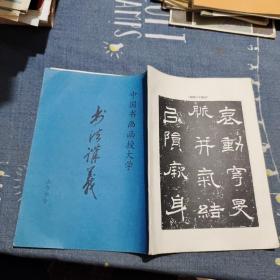 中国书画函授大学
书法讲义
哀動穹旻
脈并氣結
㠯隕厥身